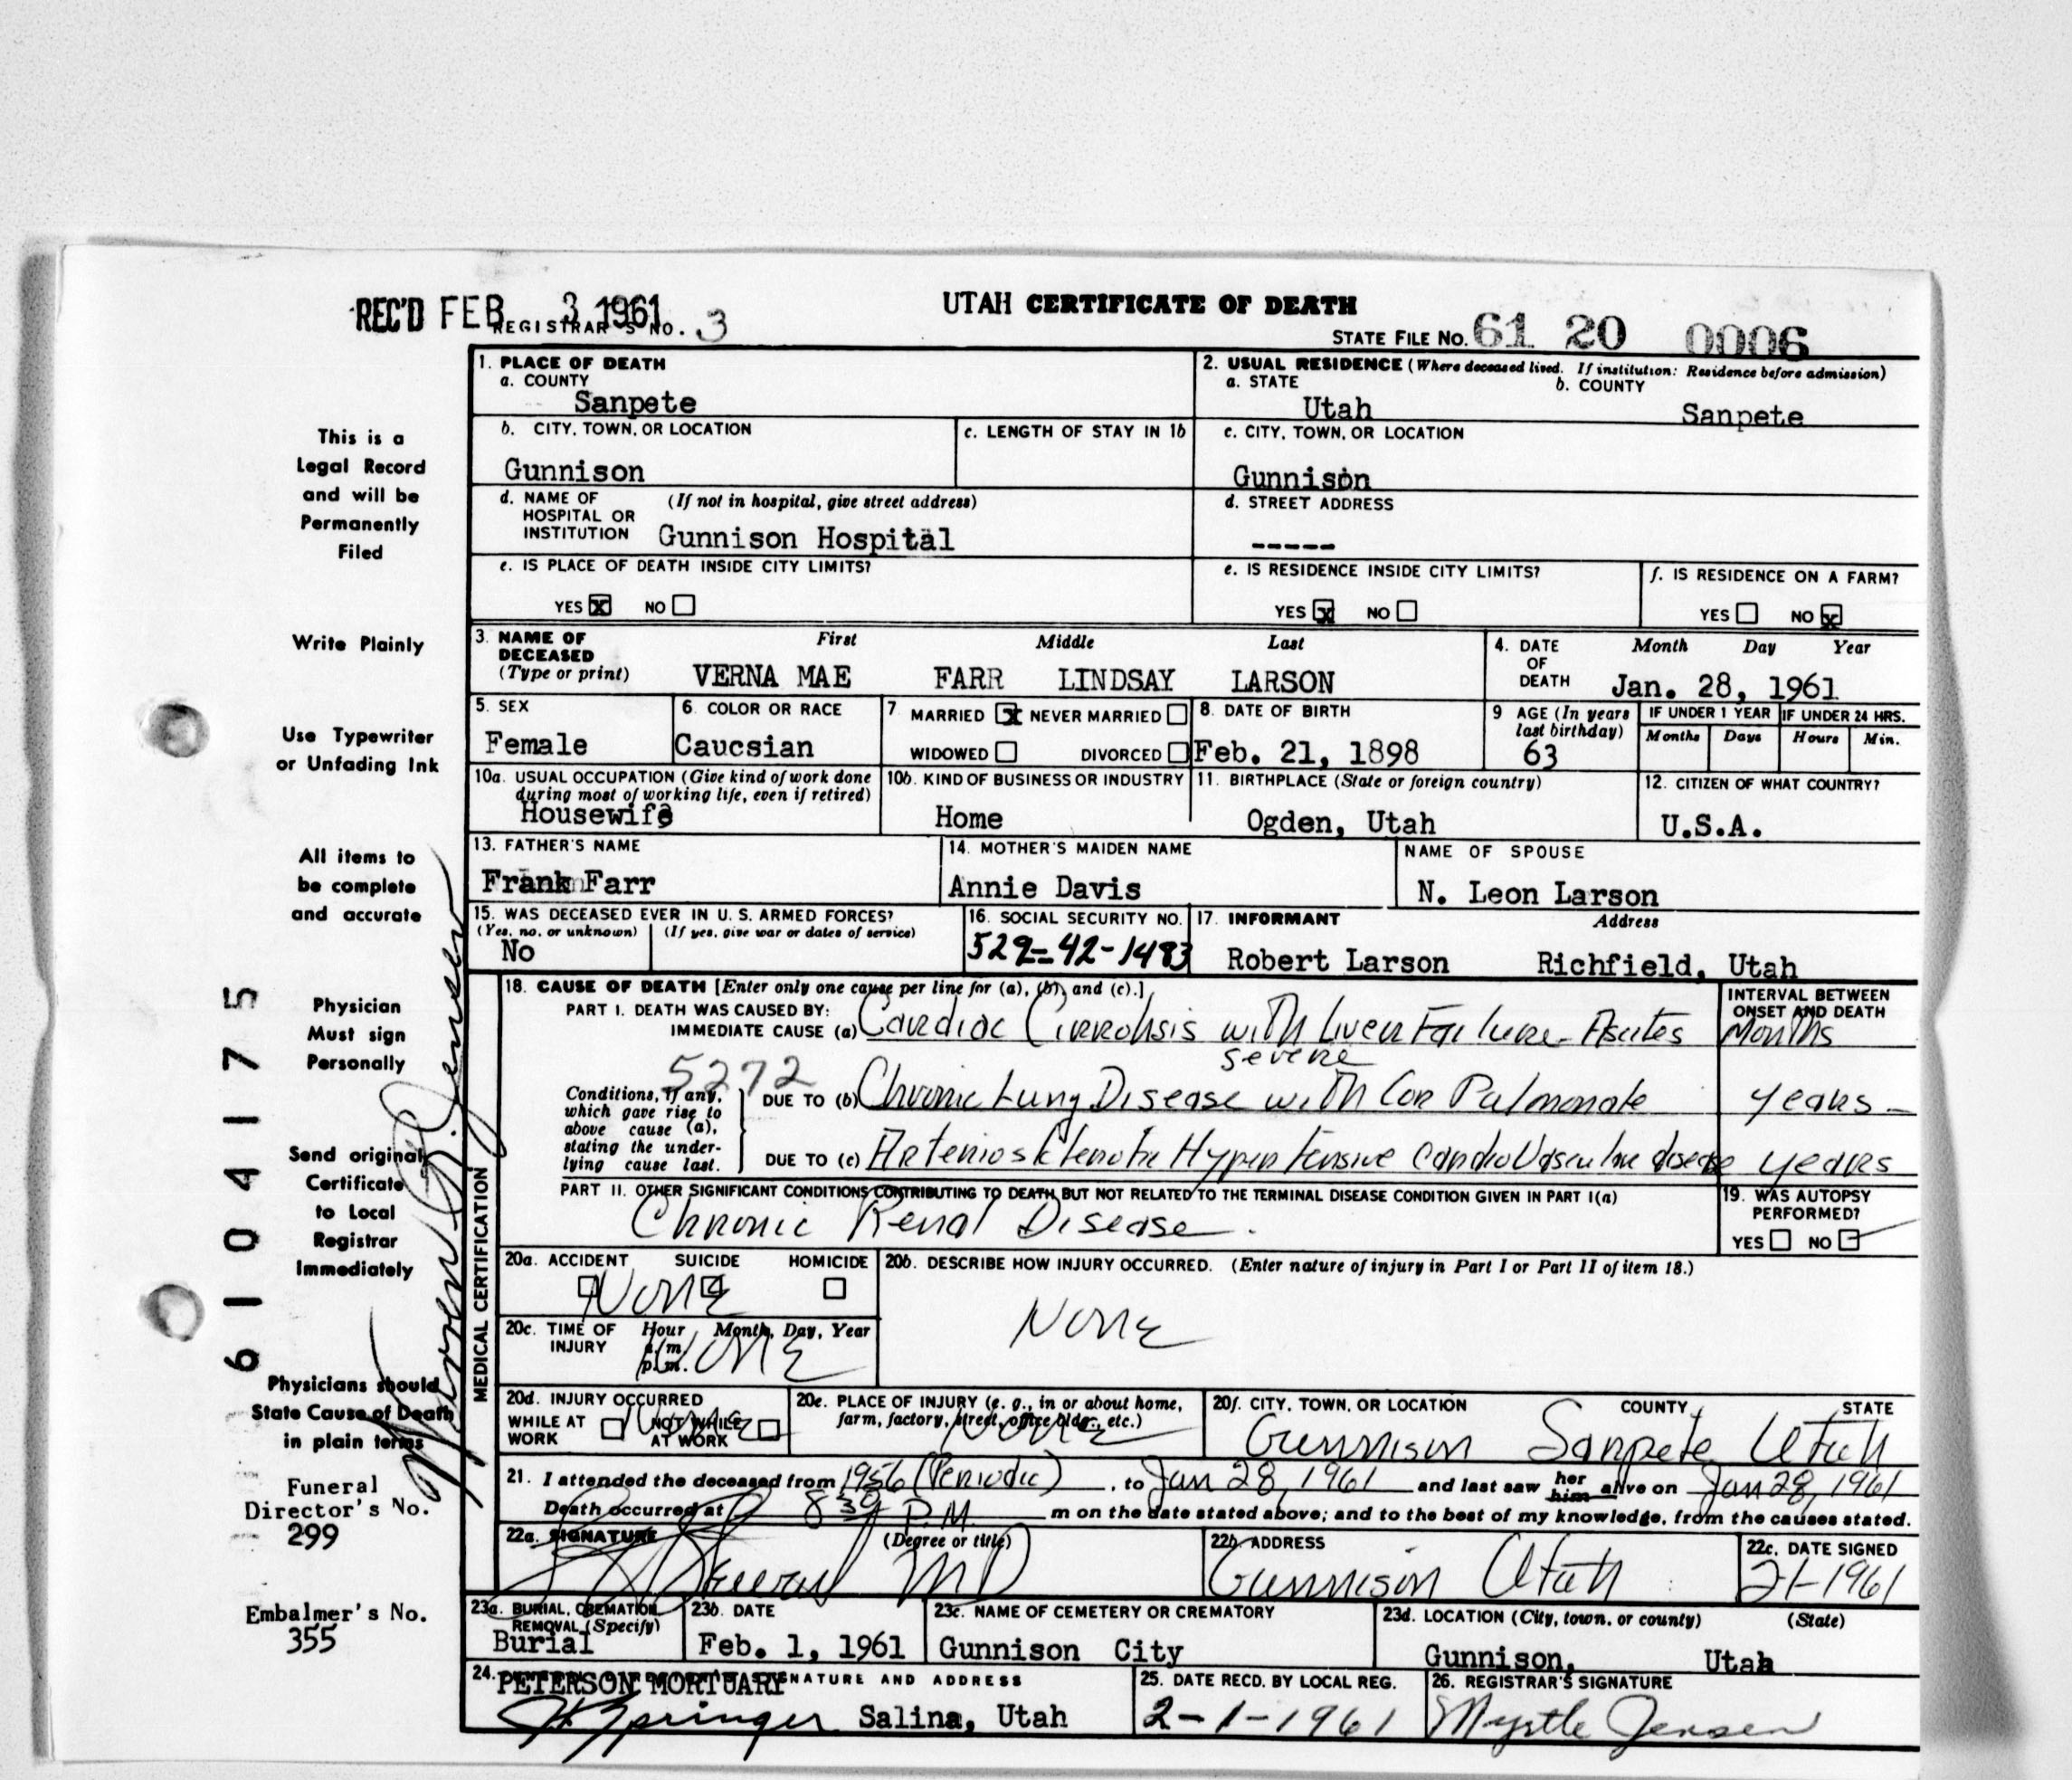 REC'D FEB 3 1961
REGISTRAR'S NO. 3
UTAH CERTIFICATE OF DEATH
STATE FILE NO. 61 20 0006
1. PLACE OF DEATH
a. COUNTY
Sanpete
2. USUAL RESIDENCE (Where deceased lived. If institution: Residence before admission)
a. STATE
Utah
b. COUNTY
Sanpete
b. CITY, TOWN, OR LOCATION
Gunnison
c. LENGTH OF STAY IN 1b
c. CITY, TOWN, OR LOCATION
Gunnison
d. NAME OF HOSPITAL OR INSTITUTION
(If not in hospital, give street address)
Gunnison Hospital
d. STREET ADDRESS
-----
e. IS PLACE OF DEATH INSIDE CITY LIMITS?
YES x NO
e. IS RESIDENCE INSIDE CITY LIMITS?
YES x NO
f. IS RESIDENCE ON A FARM?
YES NO x
3. NAME OF DECEASED
(Type or print)
First Middle Last
VERNA MAE FARR LINDSAY LARSON
4. DATE OF DEATH
Month Day Year
Jan. 28, 1961
5. SEX
Female
6. COLOR OR RACE
Caucsian
7 MARRIED x NEVER MARRIED
WIDOWED DIVORCED
8. DATE OF BIRTH
Feb. 21, 1898
9 AGE (In years last birthday)
63
IF UNDER 1 YEAR
Months Days
IF UNDER 24 HRS.
Hours Min.
10a. USUAL OCCUPATION (Give kind of work done during most of working life, even if retired)
Housewife
10b. KIND OF BUSINESS OR INDUSTRY
Home
11. BIRTHPLACE (State or foreign country)
Ogden, Utah
12. CITIZEN OF WHAT COUNTRY?
U.S.A.
13. FATHER'S NAME
Frank Farr
14. MOTHER'S MAIDEN NAME
Annie Davis
NAME OF SPOUSE
N. Leon Larson
15. WAS DECEASED EVER IN U. S. ARMED FORCES?
(Yes, no, or unknown) (If yes, give war or dates of service)
No
16. SOCIAL SECURITY NO.
529-42-1483
17. INFORMANT Address
Robert Larson Richfield, Utah
MEDICAL CERTIFICATION
18. CAUSE OF DEATH [Enter only one cause per line for (a), (b), and (c).]
PART I. DEATH WAS CAUSED BY:
IMMEDIATE CAUSE (a) Cardiac Cirrohsis with Liver Failure - Asites
INTERVAL BETWEEN ONSET AND DEATH
Months
5272
severe
Conditions, if any, which gave rise to above cause (a), stating the underlying cause last.
DUE TO (b) Chronic Lung Disease with Cor Pulmonale
years -
DUE TO (c) Arteriosklerotic Hypertensive Cardio Vascular disease
years
PART II. OTHER SIGNIFICANT CONDITIONS CONTRIBUTING TO DEATH BUT NOT RELATED TO THE TERMINAL DISEASE CONDITION GIVEN IN PART I(a)
Chronic Renal Disease.
19. WAS AUTOPSY PERFORMED?
YES NO
20a. ACCIDENT SUICIDE HOMICIDE
None
20b. DESCRIBE HOW INJURY OCCURRED. (Enter nature of injury in Part I or Part II of item 18.)
None
20c. TIME OF INJURY
Hour Month, Day, Year
a.m.
p.m.
None
20d. INJURY OCCURRED
WHILE AT WORK NOT WHILE AT WORK
None
20e. PLACE OF INJURY (e. g., in or about home, farm, factory, street, office bldg., etc.)
None
20f. CITY, TOWN, OR LOCATION COUNTY STATE
Gunnison Sanpete Utah
21. I attended the deceased from 1956 (Periodic), to Jan 28, 1961 and last saw her him alive on Jan 28, 1961
Death occurred at 8 30 P.M. m on the date stated above; and to the best of my knowledge, from the causes stated.
22a. SIGNATURE (Degree or title)
MD
22b. ADDRESS
Gunnison Utah
22c. DATE SIGNED
2-1-1961
23a. BURIAL, CREMATION, REMOVAL (Specify)
Burial
23b. DATE
Feb. 1, 1961
23c. NAME OF CEMETERY OR CREMATORY
Gunnison City
23d. LOCATION (City, town, or county) (State)
Gunnison, Utah
24. PETERSON MORTUARY SIGNATURE AND ADDRESS
Springer Salina, Utah
25. DATE RECD. BY LOCAL REG.
2-1-1961
26. REGISTRAR'S SIGNATURE
Myrtle Jensen
This is a
Legal Record
and will be
Permanently
Filed
Write Plainly
Use Typewriter
or Unfading Ink
All items to
be complete
and accurate
Physician
Must sign
Personally
Send original
Certificate
to Local
Registrar
Immediately
Physicians should
State Cause of Death
in plain terms
Funeral
Director's No.
299
Embalmer's No.
355
6104175
Jensen